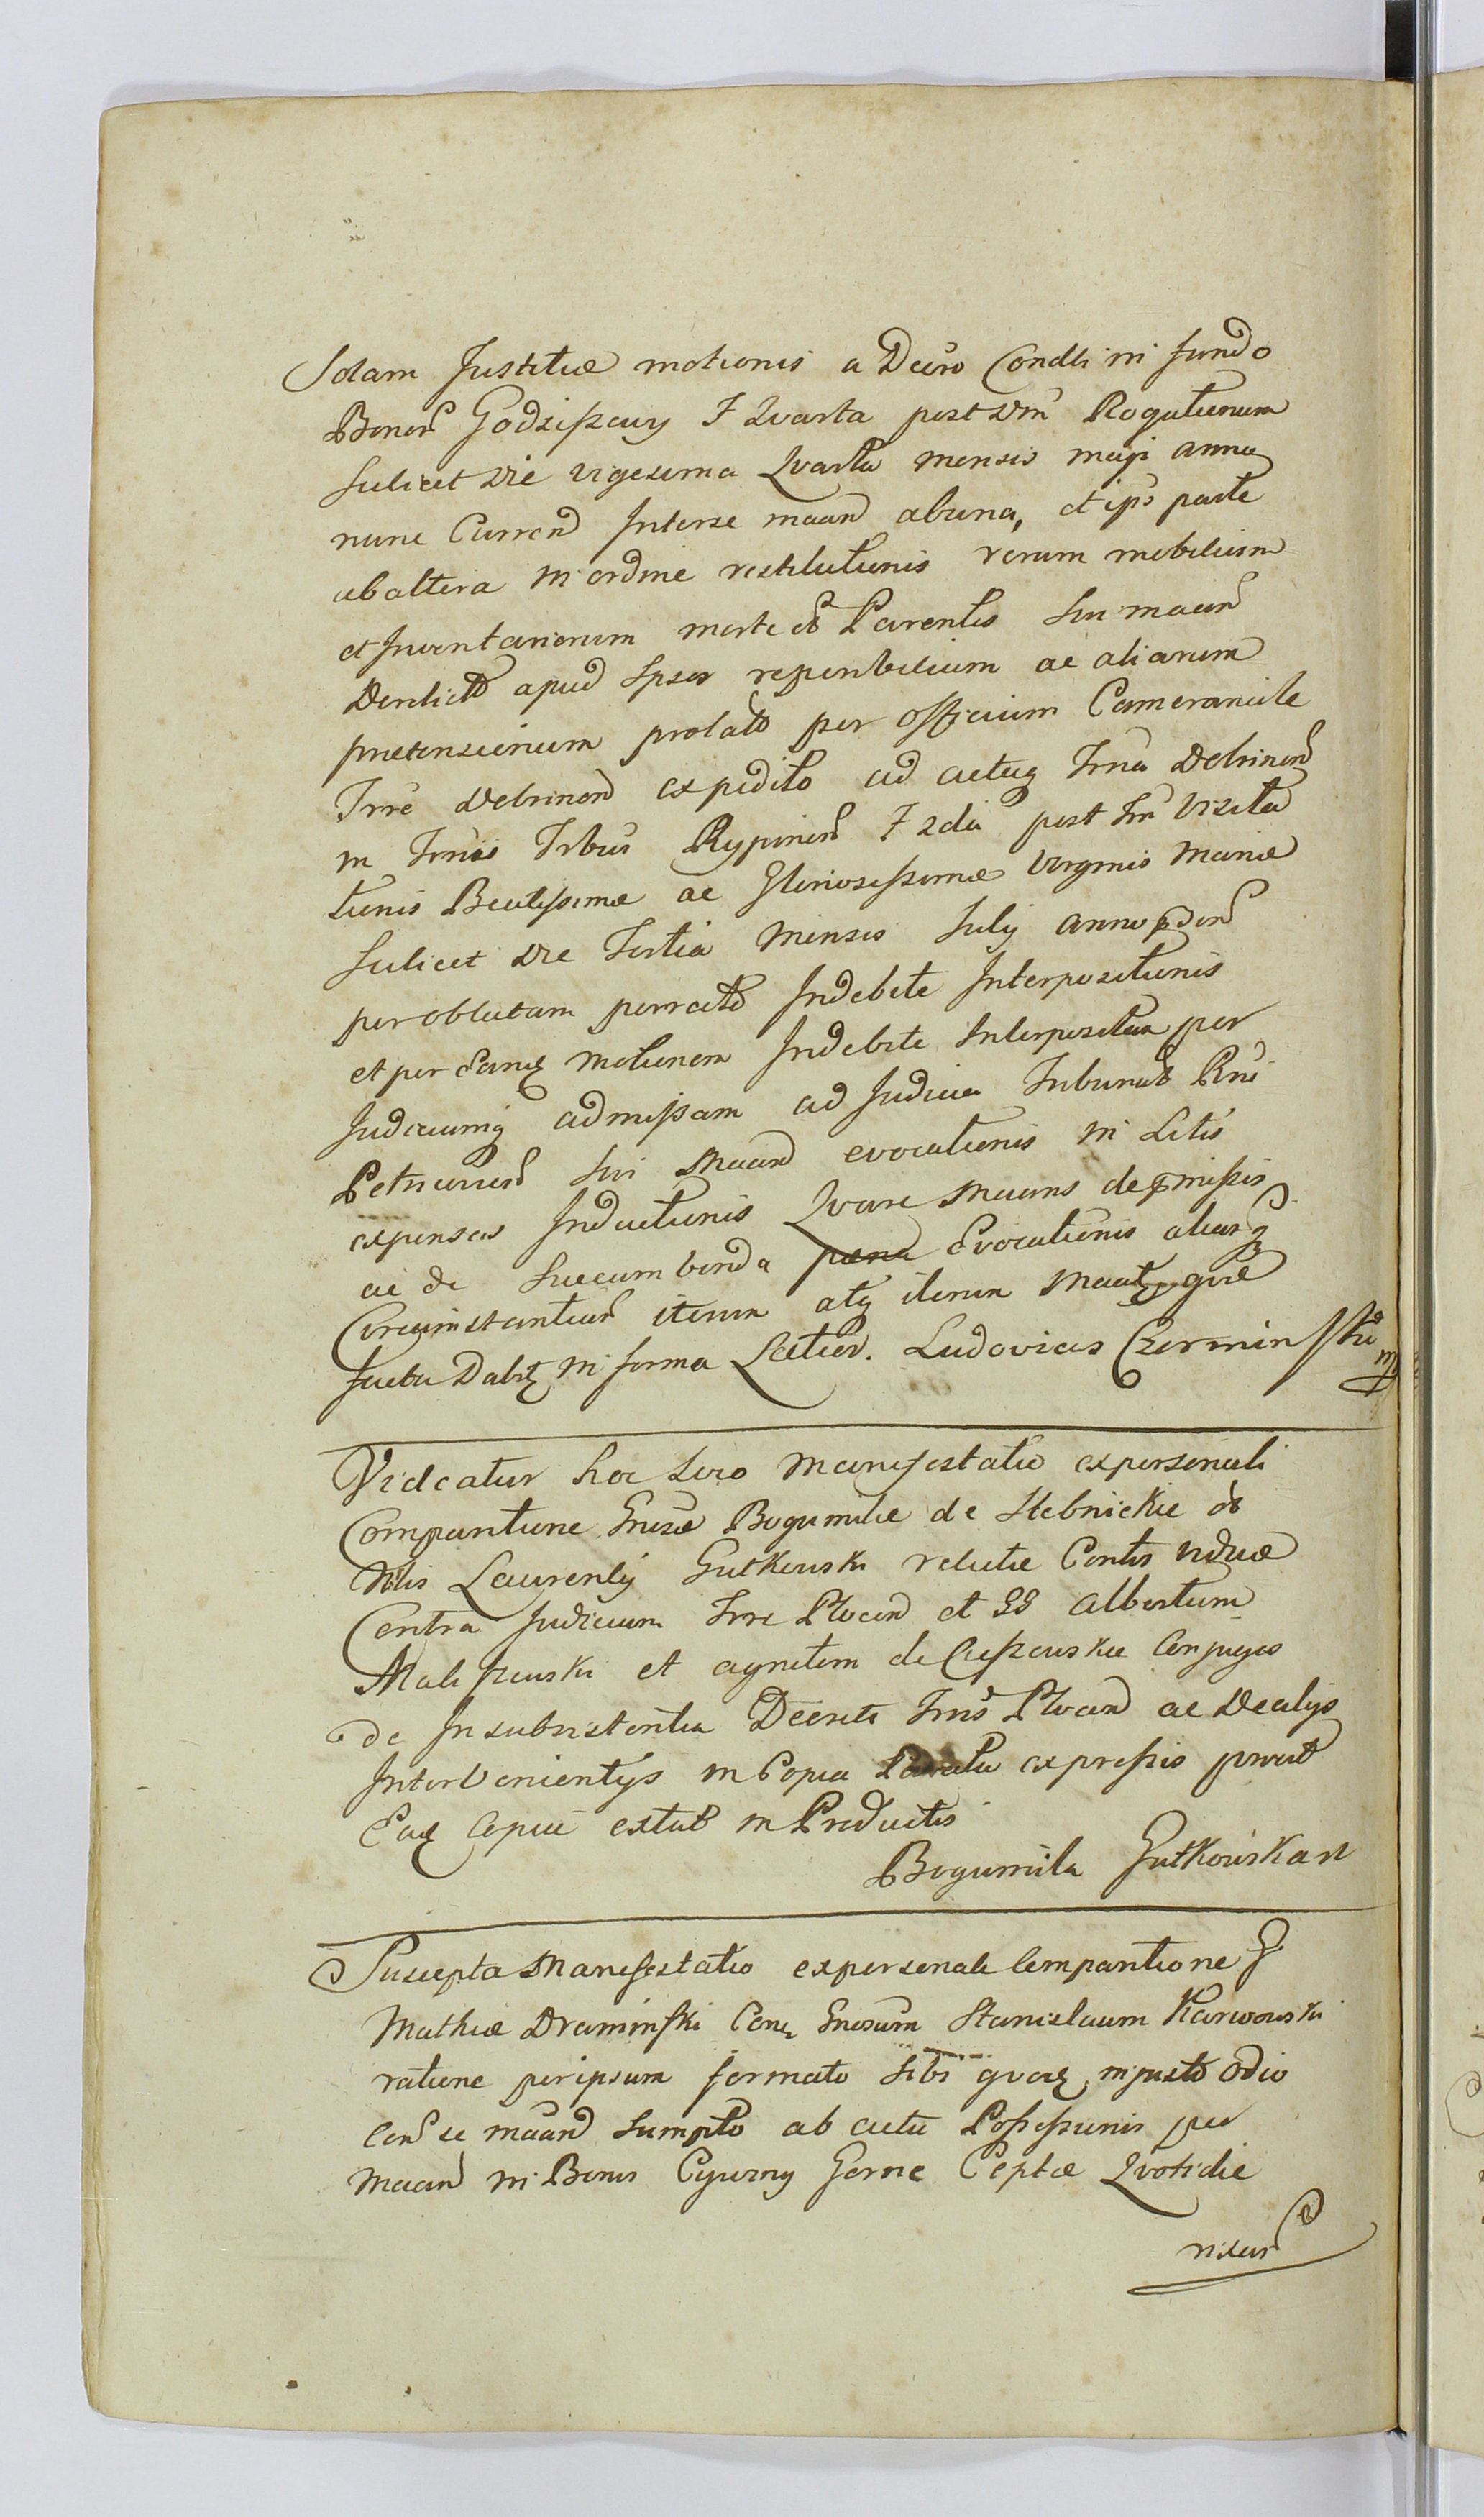 Solam Justitiæ motionis a Decro Condti in fundo
Bonor Godziszewy F Quarta post Dm Rogationum
scilicet die vigesima Quarta mensis maji anno
nunc Curren Interse maan abuna, et ips parte
ab altera in ordine restitutionis rerum mobilium
et Inventariorum morte ol Parentis sui maan
Derelict apud Ipsos reperibilium ac aliarum
prætensionum prolat per officium Camerariale
Trre Dobrinen expedito ad acta Trria Dobrinen
in Trriis Tribus Rypinen F 2da post fm Visita
tionis Beatissimæ ac Gloriosissimæ Virginis Mariæ
scilicet die Tertia Mensis Julij anno
per oblatam porrect Indebite Interpositionis
et per eam Motionem Indebite Interpositam per
Judiciumq admissam ad Judicia Tribunal Rni
Petricovien sui Maan evocationis in Litis
expensas Inductionis Quare Maans de pmissis
ac de succumbenda pæna Evocationis aliarq
Circumstantiar iterum atq iterum Maatq quæ
facta Dabit in forma Latior. Ludovicus Czerminski mp
Videatur hoc loco Manifestatio expersonali
Comparitione Gnisæ Bogumilæ de Stebnickie ol
Nlis Laurentij Gutkowski relictæ Contis viduæ
Contra Judicium Trre Plocen et GG Albertum
Maliszewski et agnetem de Cieszewskie Conjuges
de Insubsistentia Decreti Trris Plocen ac De alijs
Intervenientijs in Copia Parata expressis prout
Eaq copia extat in Productis
Bogumila Gutkowska st
Suscepta Manifestatio expersonali Comparitione G
Mathiæ Draminski Con Gnosum Stanislaum Karwowski
ratione per ipsum formato sibi in justo odio
Con se maan sumpto ab actu Possessionis per
maan in Bonis Czurny Gorne Ceptæ Quotidie
nixus